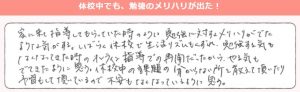 休校中でも、勉強のメリハリが出た！
家に来て指導してもらっていた時のように、勉強に対するメリハリがでた
ような気がする。しばらく休校で生活リズムもくずれ、勉強する気も
なくなってきた時のオンライン指導での再開だったから、やる気も
でてきたように思う。休校中の課題の分からない所も教えて頂いたり
予習もして頂いているので不安もなくなっているように思う。